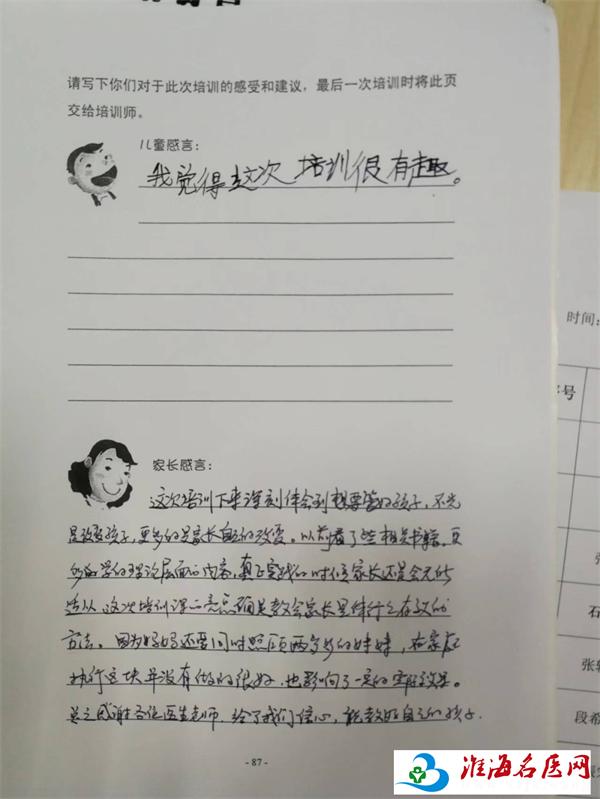 请写下你们对于此次培训的感受和建议，最后一次培训时将此页
交给培训师。
儿童感言：
我觉得这次培训很有趣。
时间：
序号
家长感言：
这次培训下来深刻体会到想要管好孩子，不光
是改变孩子，更多的是家长自己的改变。以前看了些相关书籍，更
多的学的理论层面的内容，真正实践的时候家长还是会无所
适从，这次培训课的亮点确是教会家长具体行之有效的
方法。因为妈妈还要同时照顾两岁多的妹妹，在家庭
执行这块并没有做的很好，也影响了一定的实际效果。
总之感谢各位医生老师，给了我们信心，能教好自己的孩子.
石
张
段希
- 87 -
淮海名医网